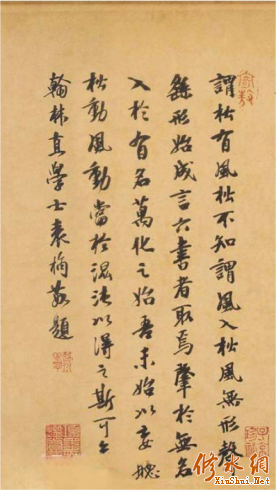 謂松有風松不知謂風入松風無形聲
繇形始成言六書者取焉肇於無名
入於有名萬化之始吾未始以妄
松動風動當於混沌以得之斯可
翰林直學士袁桷敬題
修水网
XiuShui.Net